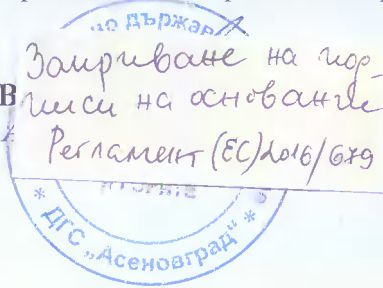 но държав
Заириване на под-
В
писи на основание
Регламент (ЕС) 2016/679
* ДГС „Асеновград" *